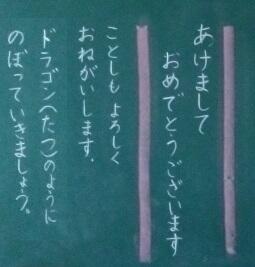 あけまして
おめでとうございます
ことしも よろしく
おねがいします.
ドラゴン(たつ)のように
のぼっていきましょう。